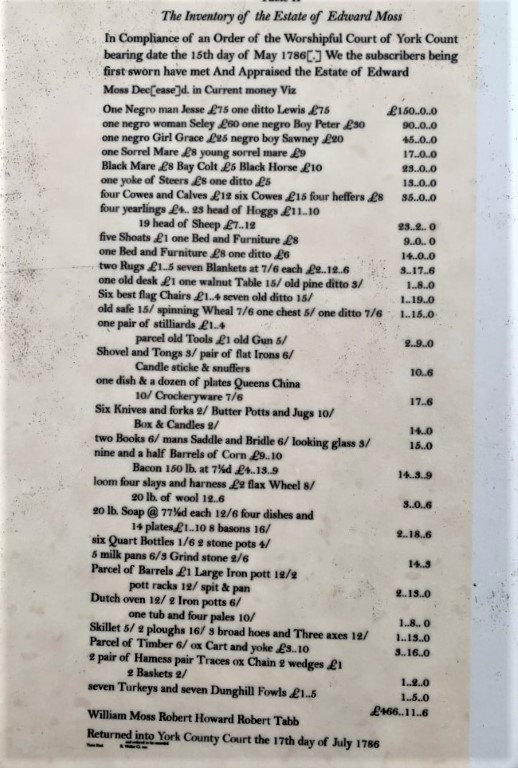 The Inventory of the Estate of Edward Moss
In Compliance of an Order of the Worshipful Court of York Count
bearing date the 15th day of May 1786[.] We the subscribers being
first sworn have met And Appraised the Estate of Edward
Moss Dec[ease]d. in Current money Viz
One Negro man Jesse £75 one ditto Lewis £75 £150..0..0
one negro woman Seley £60 one negro Boy Peter £30 90..0..0
one negro Girl Grace £25 negro boy Sawney £20 45..0..0
one Sorrel Mare £8 young sorrel mare £9 17..0..0
Black Mare £8 Bay Colt £5 Black Horse £10 23..0..0
one yoke of Steers £8 one ditto £5 13..0..0
four Cowes and Calves £12 six Cowes £15 four heffers £8 35..0..0
four yearlings £4.. 23 head of Hoggs £11..10
19 head of Sheep £7..12 23..2.. 0
five Shoats £1 one Bed and Furniture £8 9..0.. 0
one Bed and Furniture £8 one ditto £6 14..0..0
two Rugs £1..5 seven Blankets at 7/6 each £2..12..6 3..17..6
one old desk £1 one walnut Table 15/ old pine ditto 3/ 1..8..0
Six best flag Chairs £1..4 seven old ditto 15/ 1..19..0
old safe 15/ spinning Wheal 7/6 one chest 5/ one ditto 7/6 1..15..0
one pair of stilliards £1..4
parcel old Tools £1 old Gun 5/ 2..9..0
Shovel and Tongs 3/ pair of flat Irons 6/
Candle sticke & snuffers 10..6
one dish & a dozen of plates Queens China
10/ Crockeryware 7/6 17..6
Six Knives and forks 2/ Butter Potts and Jugs 10/
Box & Candles 2/ 14..0
two Books 6/ mans Saddle and Bridle 6/ looking glass 3/ 15..0
nine and a half Barrels of Corn £9..10
Bacon 150 lb. at 7½d £4..13..9 14..3..9
loom four slays and harness £2 flax Wheel 8/
20 lb. of wool 12..6 3..0..6
20 lb. Soap @ 77½d each 12/6 four dishes and
14 plates £1..10 8 basons 16/ 2..18..6
six Quart Bottles 1/6 2 stone pots 4/
5 milk pans 6/3 Grind stone 2/6 14..3
Parcel of Barrels £1 Large Iron pott 12/2
pott racks 12/ spit & pan 2..13..0
Dutch oven 12/ 2 Iron potts 6/
one tub and four pales 10/ 1..8.. 0
Skillet 5/ 2 ploughs 16/ 3 broad hoes and Three axes 12/ 1..13..0
Parcel of Timber 6/ ox Cart and yoke £3..10 3..16..0
2 pair of Hamess pair Traces ox Chain 2 wedges £1
2 Baskets 2/ 1..2..0
seven Turkeys and seven Dunghill Fowls £1..5 1..5..0
£466..11..6
William Moss Robert Howard Robert Tabb
Returned into York County Court the 17th day of July 1786